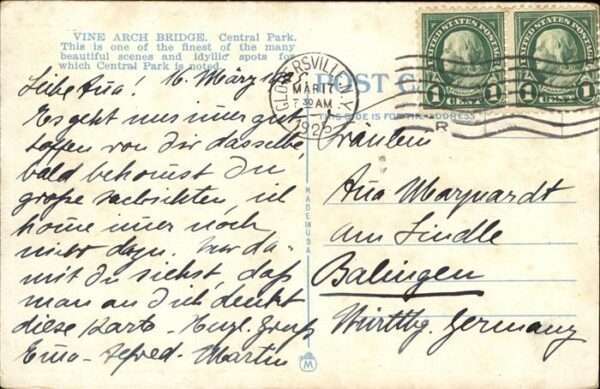 VINE ARCH BRIDGE. Central Park.
This is one of the finest of the many
beautiful scenes and idyllic spots for
which Central Park is noted.
Liebe Ana! 16. März
Es geht uns imer gut
hoffen von dir dasselbe
bald bekomst du
große Nachrichten, ich
kome imer noch
nicht dazu. Nur da-
mit du siehst, daß
man an dich denkt
diese Karte - Herzl. Gruß
Ema - Alfred - Martin
POST
GLOVERSVILLE, N.Y.
MAR 17
7 30 AM
UNITED STATES POSTAGE
1 CENT 1
UNITED STATES POSTAGE
1 CENT 1
THIS SIDE IS FOR THE ADDRESS
Fräulein
Ana Maynardt
Am Lindle
Balingen
Württbg. Germany
MADE IN USA
M